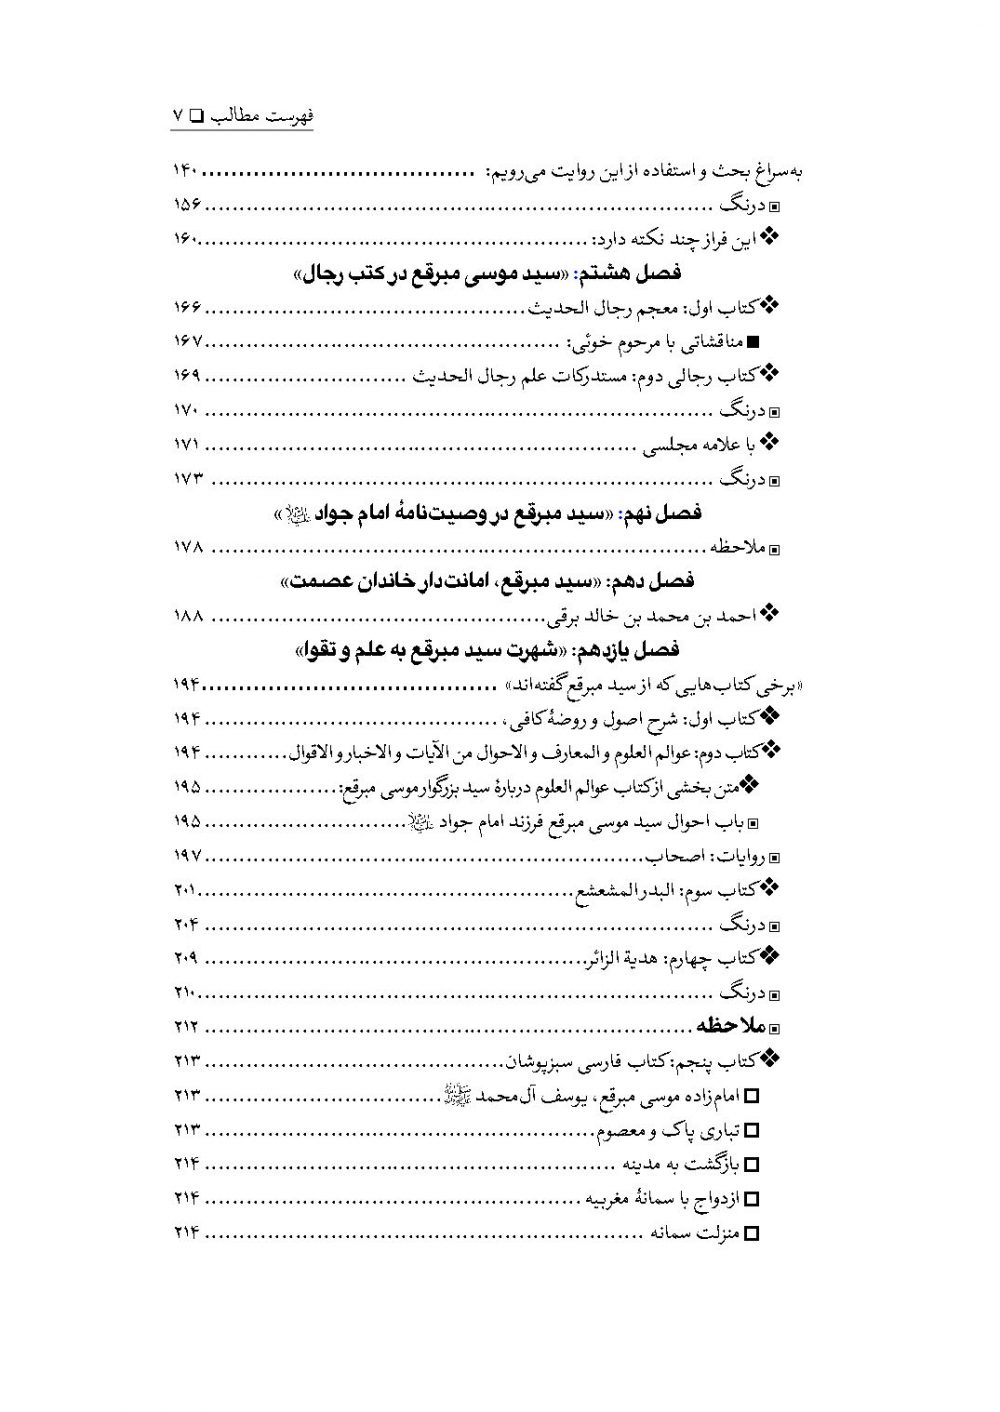 فهرست مطالب ❏ ۷
به‌سراغ بحث و استفاده از این روایت می‌رویم: ۱۴۰
▣ درنگ ۱۵۶
❖ این فراز چند نکته دارد: ۱۶۰
فصل هشتم: «سید موسی مبرقع در کتب رجال»
❖ کتاب اول: معجم رجال الحدیث ۱۶۶
■ مناقشاتی با مرحوم خوئی: ۱۶۷
❖ کتاب رجالی دوم: مستدرکات علم رجال الحدیث ۱۶۹
▣ درنگ ۱۷۰
❖ با علامه مجلسی ۱۷۱
▣ درنگ ۱۷۳
فصل نهم: «سید مبرقع در وصیت‌نامۀ امام جواد علیه‌السلام»
▣ ملاحظه ۱۷۸
فصل دهم: «سید مبرقع، امانت‌دار خاندان عصمت»
❖ احمد بن محمد بن خالد برقی ۱۸۸
فصل یازدهم: «شهرت سید مبرقع به علم و تقوا»
«برخی کتاب‌هایی که از سید مبرقع گفته‌اند» ۱۹۴
❖ کتاب اول: شرح اصول و روضۀ کافی، ۱۹۴
❖ کتاب دوم: عوالم العلوم و المعارف و الاحوال من الآیات و الاخبار و الاقوال ۱۹۴
❖ متن بخشی از کتاب عوالم العلوم دربارۀ سید بزرگوار موسی مبرقع: ۱۹۵
▣ باب احوال سید موسی مبرقع فرزند امام جواد علیه‌السلام ۱۹۵
▣ روایات: اصحاب ۱۹۷
❖ کتاب سوم: البدر المشعشع ۲۰۱
▣ درنگ ۲۰۴
❖ کتاب چهارم: هدیة الزائر ۲۰۹
▣ درنگ ۲۱۰
▣ ملاحظه ۲۱۲
❖ کتاب پنجم: کتاب فارسی سبزپوشان ۲۱۳
❏ امام‌زاده موسی مبرقع، یوسف آل‌محمد ﷺ ۲۱۳
❏ تباری پاک و معصوم ۲۱۳
❏ بازگشت به مدینه ۲۱۴
❏ ازدواج با سمانۀ مغربیه ۲۱۴
❏ منزلت سمانه ۲۱۴